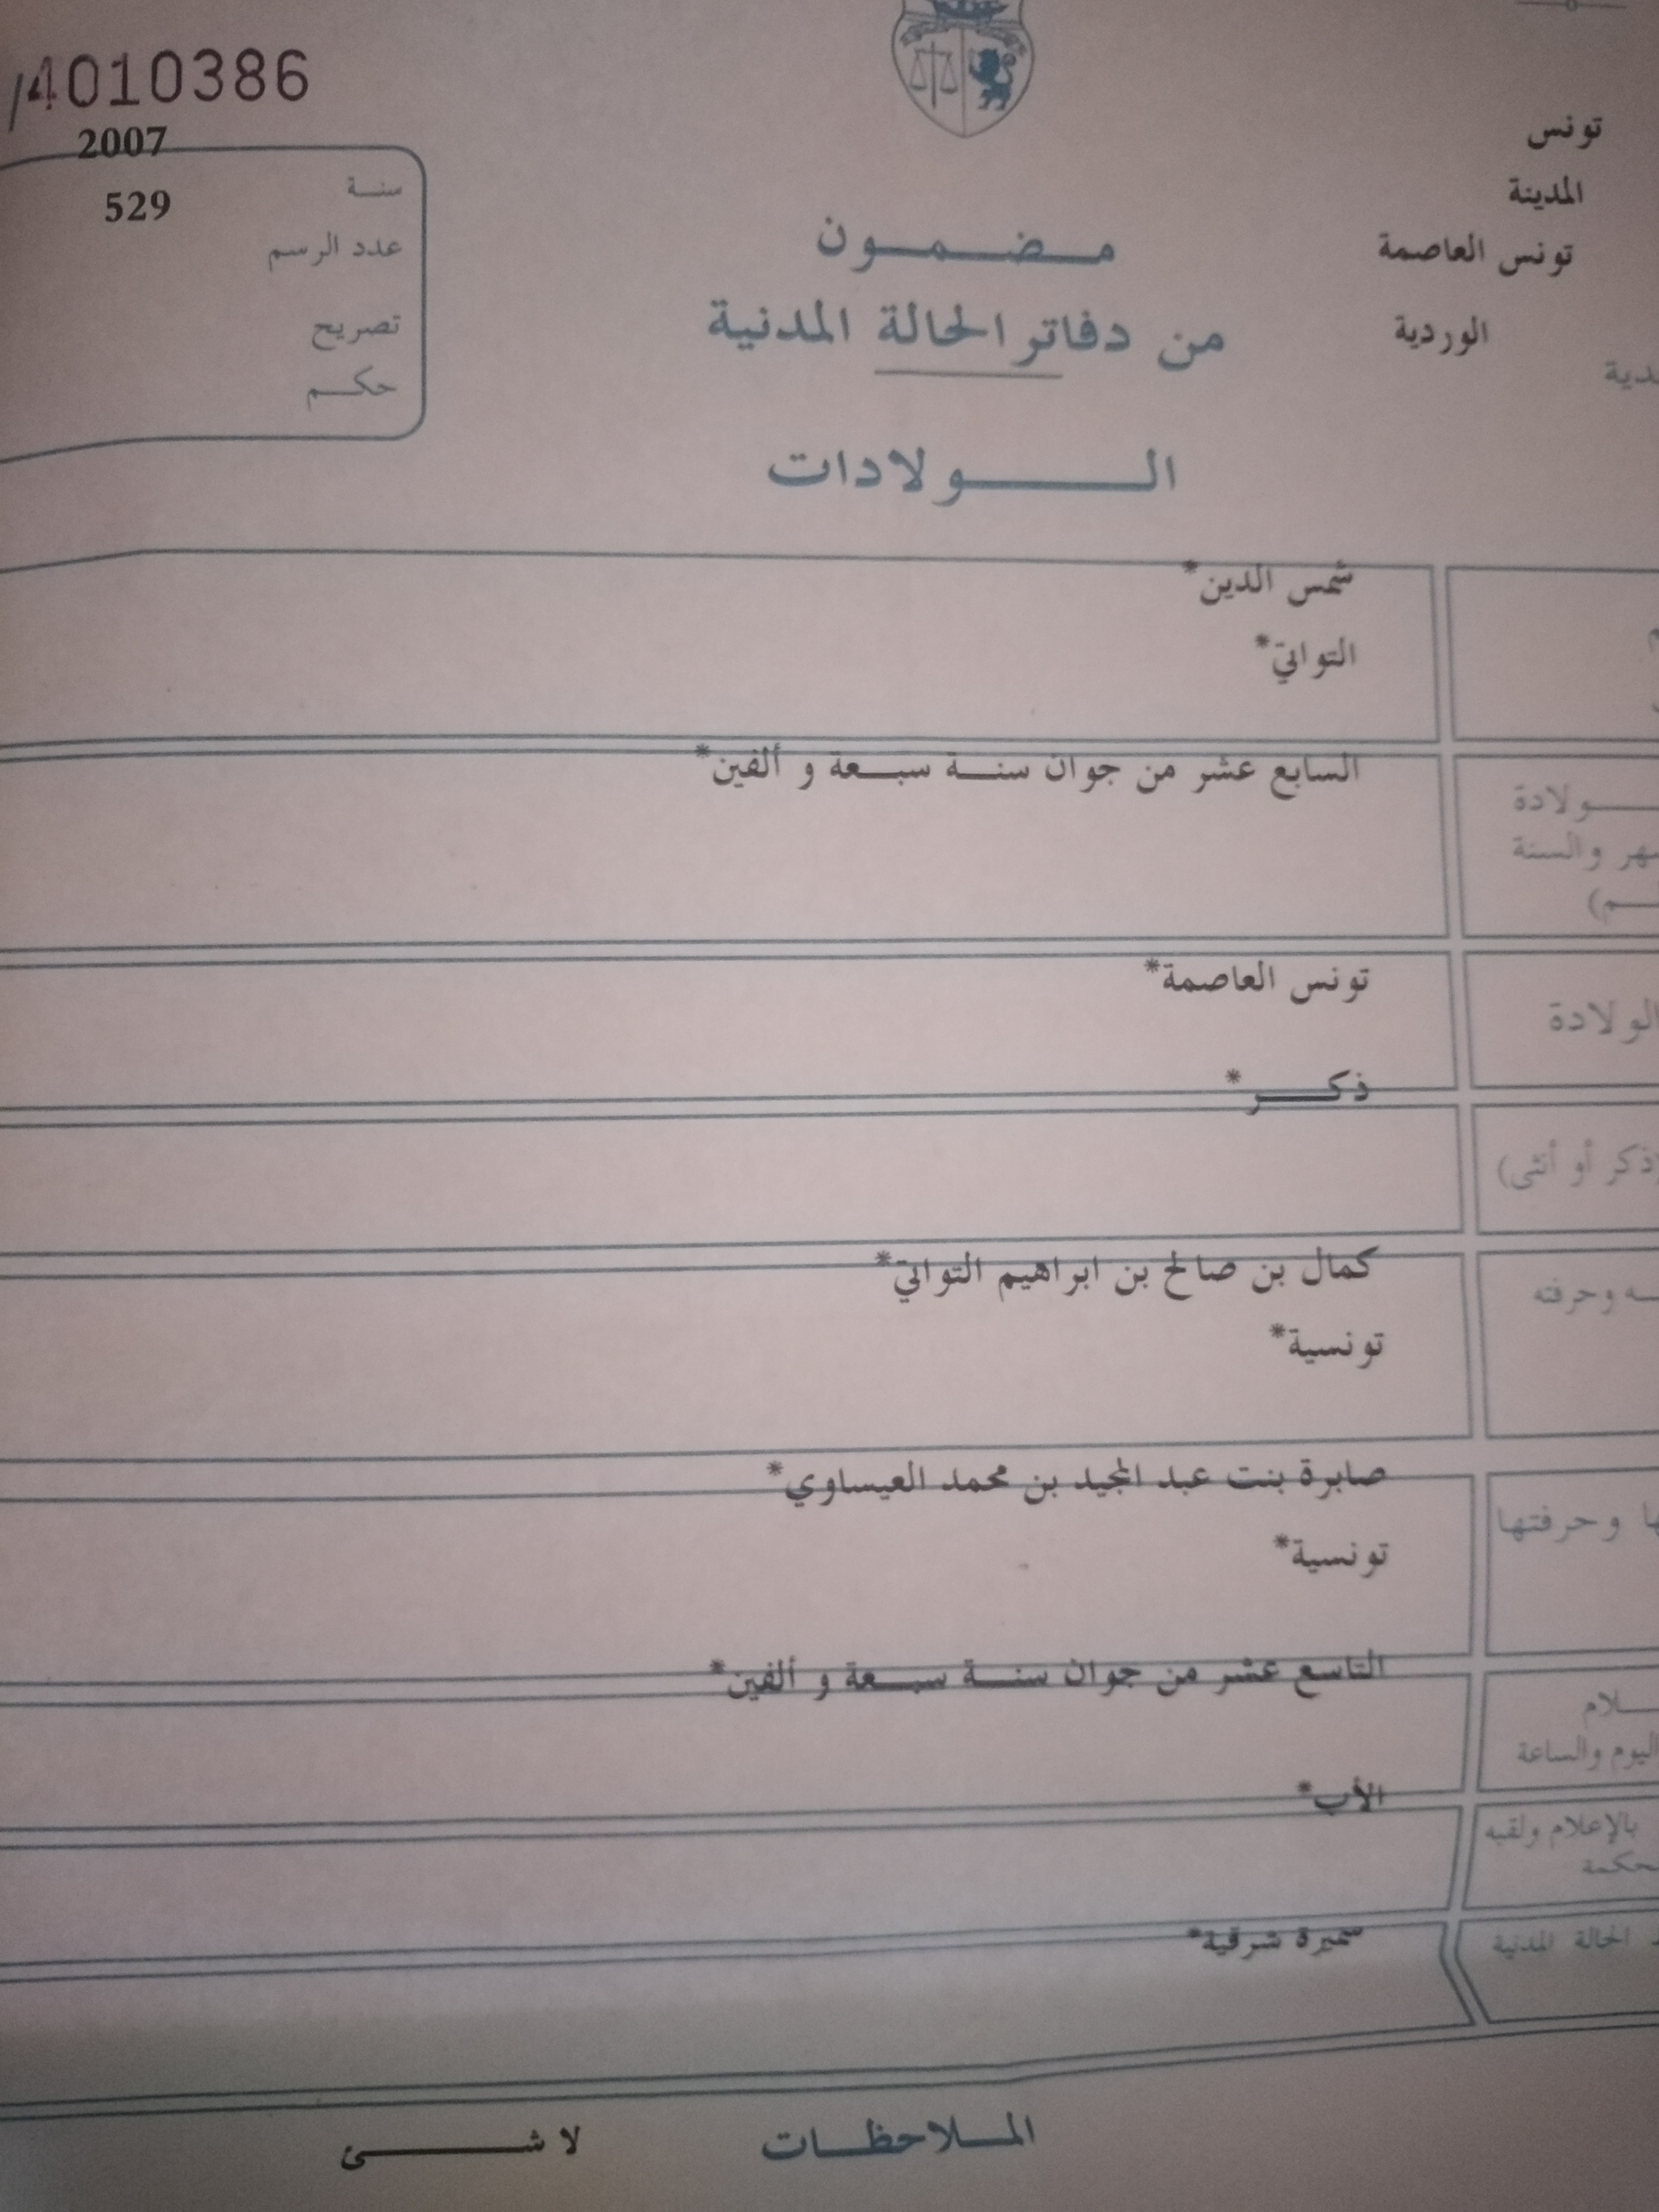 4010386
2007
سنة
529
عدد الرسم
تصريح
حكم
تونس
المدينة
تونس العاصمة
الوردية
مضمون
من دفاتر الحالة المدنية
الولادات
شمس الدين*
التواتي*
السابع عشر من جوان سنة سبعة و ألفين*
ولادة
والسنة
تونس العاصمة*
الولادة
ذكر*
(ذكر أو أنثى)
كمال بن صالح بن ابراهيم التواتي*
وحرفته
تونسية*
صابرة بنت عبد المجيد بن محمد العيساوي*
وحرفتها
تونسية*
التاسع عشر من جوان سنة سبعة و ألفين*
اليوم والساعة
الأب*
بالإعلام ولقبه
سميرة شرقية*
الحالة المدنية
الملاحظات لا شئ